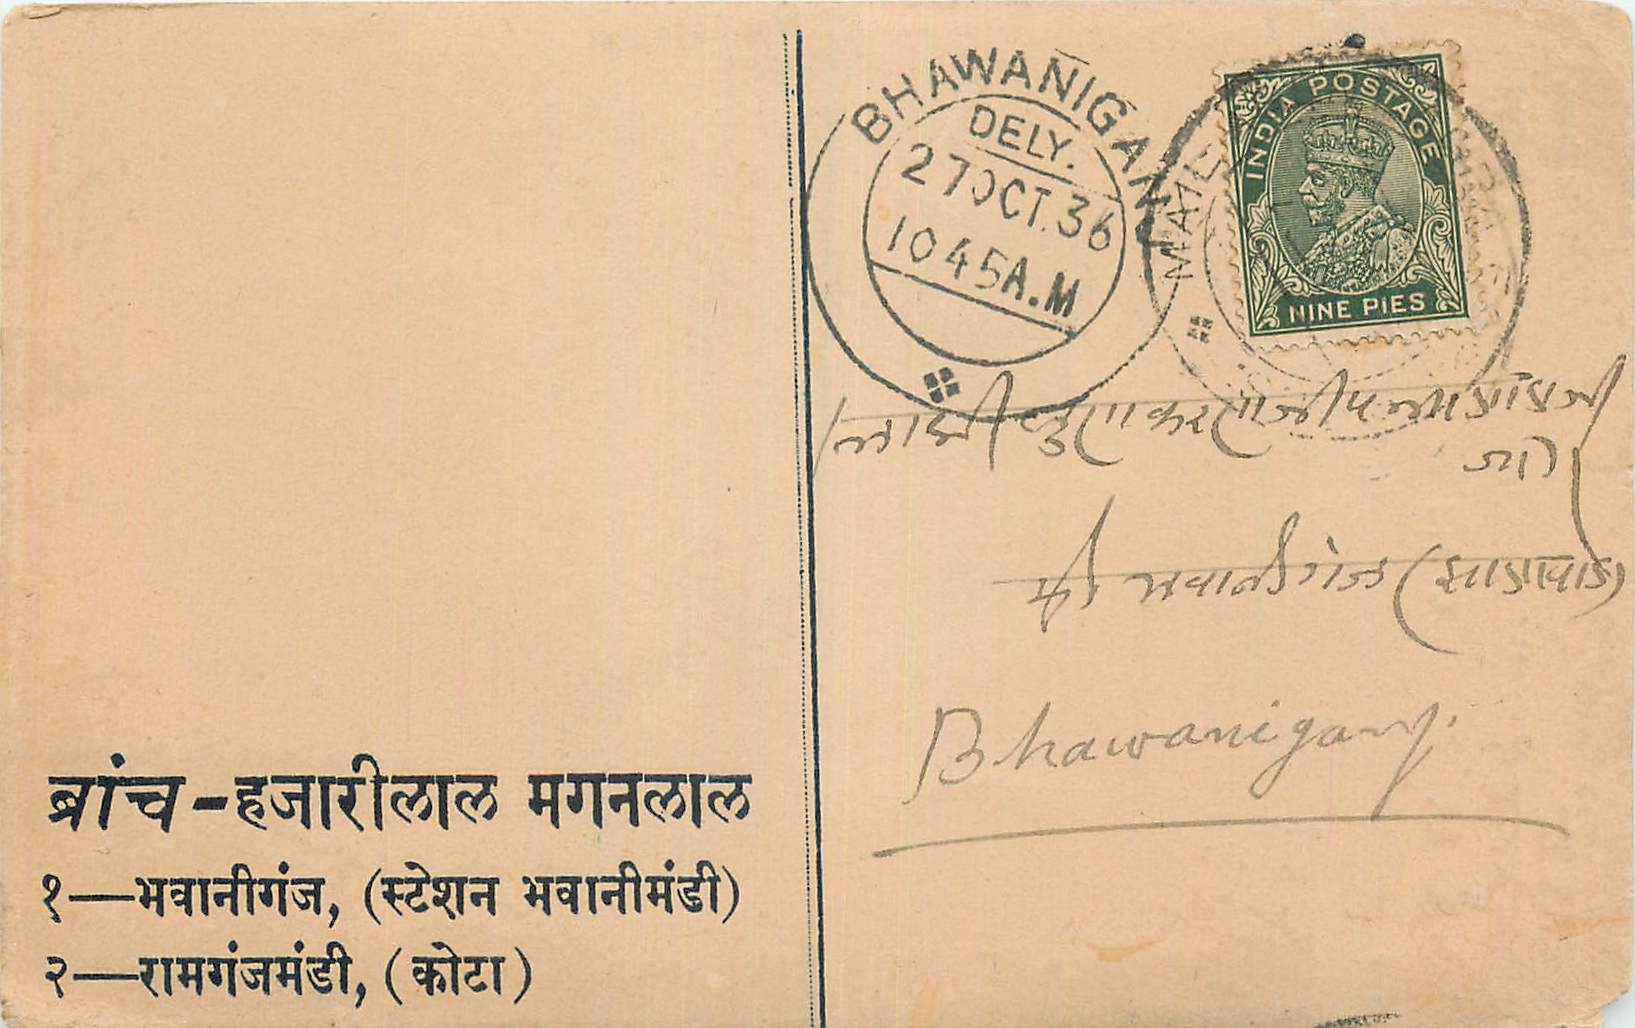 BHAWANIGANJ
DELY.
27 OCT. 36
10 45 A.M
INDIA POSTAGE
NINE PIES
भवानीगंज (झालावाड)
Bhawaniganj.
ब्रांच - हजारीलाल मगनलाल
१—भवानीगंज, (स्टेशन भवानीमंडी)
२—रामगंजमंडी, (कोटा)